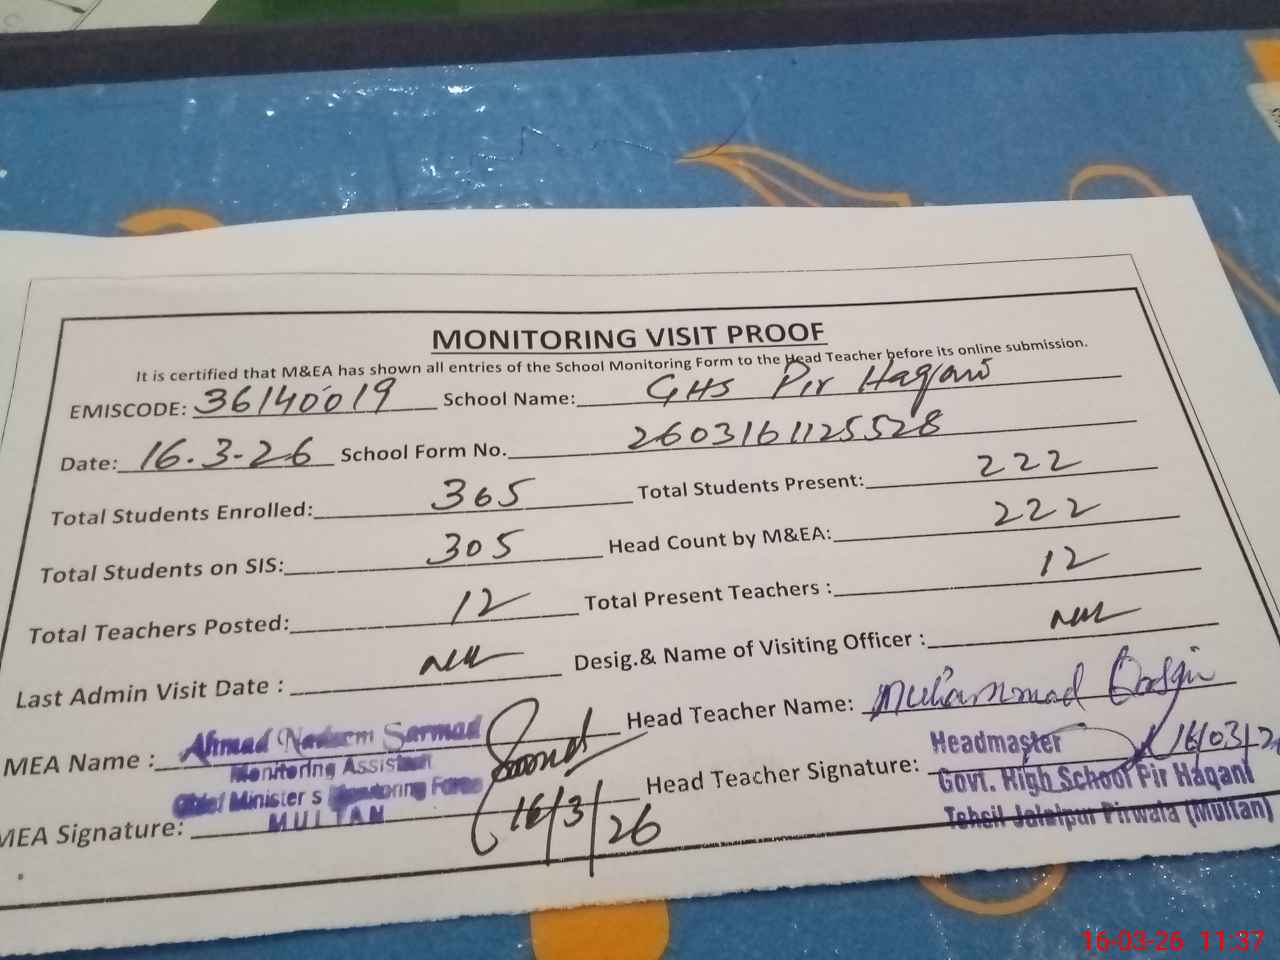 MONITORING VISIT PROOF
It is certified that M&EA has shown all entries of the School Monitoring Form to the Head Teacher before its online submission.
EMISCODE: 36140019 School Name: GHS Pir Haqani
Date: 16.3-26 School Form No. 2603161125528
Total Students Enrolled: 365 Total Students Present: 222
Total Students on SIS: 305 Head Count by M&EA: 222
Total Teachers Posted: 12 Total Present Teachers : 12
Last Admin Visit Date : Nil Desig.& Name of Visiting Officer : Nil
MEA Name : Ahmad Nadeem Sarmad Head Teacher Name: Muhammad
Monitoring Assistant
Chief Minister s Monitoring Force
MULTAN
MEA Signature: 16/3/26 Head Teacher Signature: 16/03/2
Headmaster
Govt. High School Pir Haqani
Tehsil Jalalpur Pirwala (Multan)
16-03-26 11:37